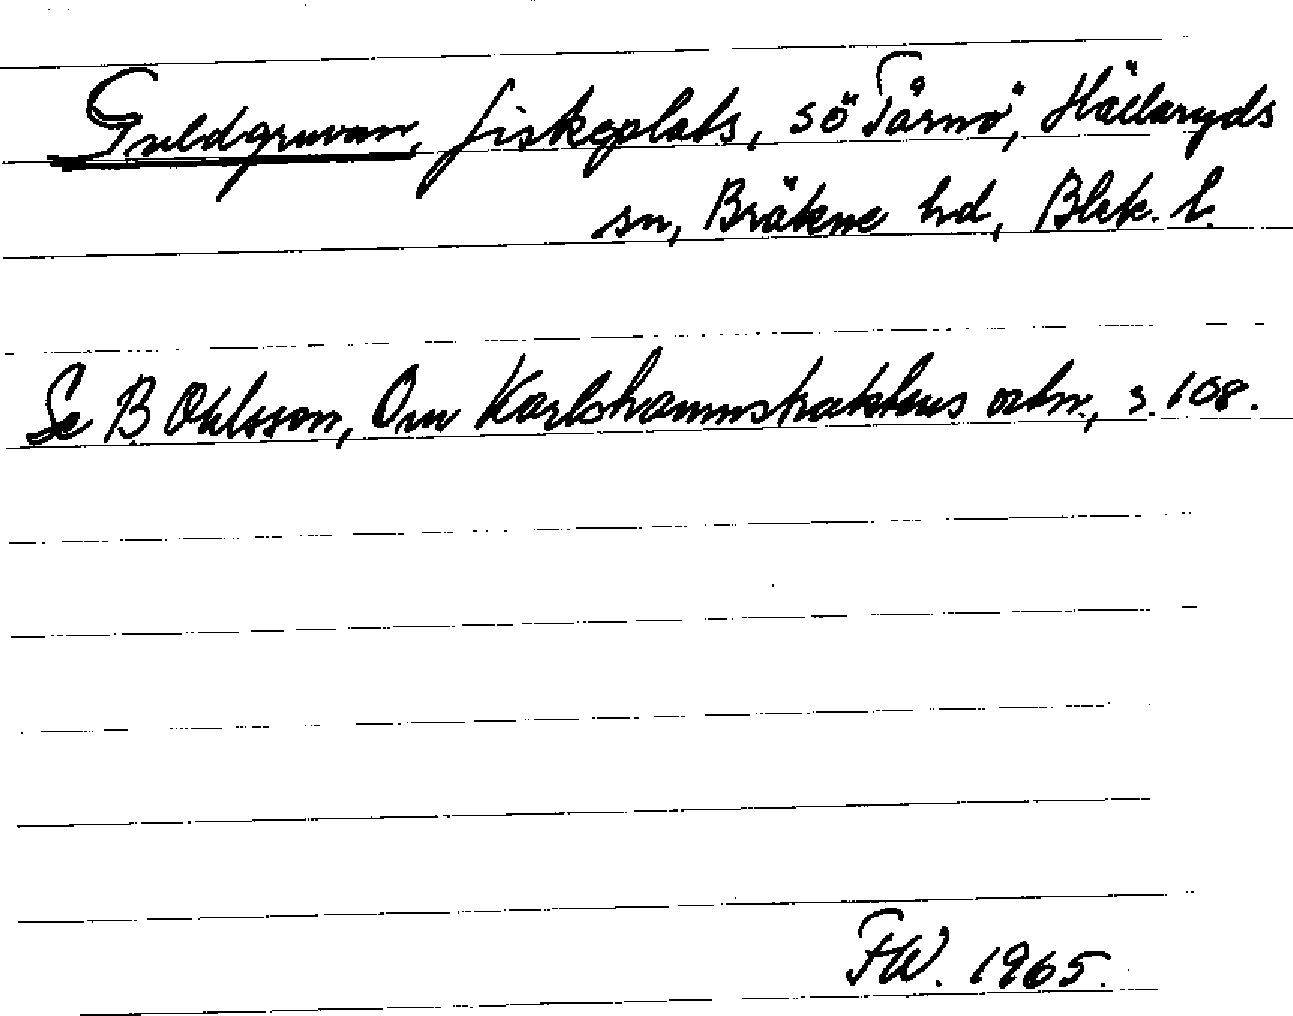 Guldgruvan, fiskeplats, sö Tärnö, Hällaryds
sn, Bräkne hd, Blek. l.
Se B Ohlsson, Om Karlshamnstraktens ortn., s. 108.
FW. 1965.